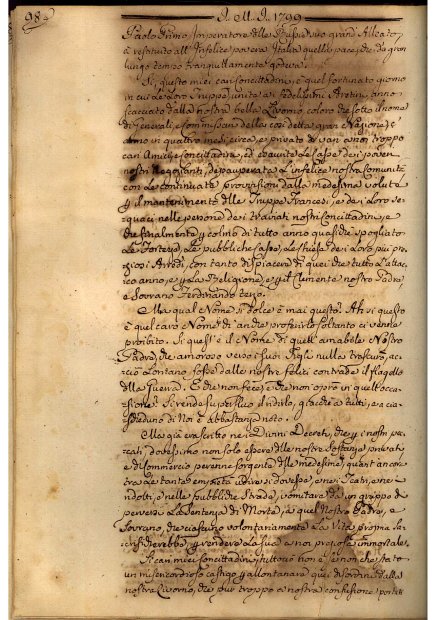 98
A. M. D. 1799
Paolo Primo Imperatore delle Russie suo grand'Alleato,
a restituto all'Infelice povera Italia quella pace, che da gran
lungo tempo tranquillamente godeva.
Si, questo miei cari Concittadini, è quel fortunato giorno
in cui le Loro Truppe unite a i fedelissimi Aretini, anno
scacciato dalla nostra bella Livorno, coloro che sotto il nome
di Generali, e Commissari della così detta gran Nazione,
anno in quattro mesi circa privato di vari a noi troppo
cari Amici, e Concittadini, ed esaurite Le Casse dei poveri
nostri Negozianti, depauperata L'infelice nostra Comunità
con Le continuate provvisioni dalla medesima volute
p il mantenimento delle Truppe Francesi, e dei Loro se-
guaci nelle persone dei traviati nostri Concittadini, e
che finalmente p colmo di tutto anno quasi che spogliato
Le Fortezze, Le pubbliche Casse, Le Chiese dei Loro più pre-
ziosi Arredi, con tanto dispiacere di quei che tutto L'attac-
co anno, e p La Religione, e p il Clemente nostro Padre
e Sovrano Ferdinando terzo.
Ma qual Nome sì dolce è mai questo? Ah si questo
è quel caro Nome che anche proferirlo soltanto ci venne
proibito. Si quest'è il Nome di quell'amabile Nostro
Padre, che amoroso verso i suoi Figli nulla trascurò, ac-
ciò Lontano fosse dalle nostre felici contrade il flagello
della Guerra. E che non fece, e che non oprò in quell'occa-
sione? Si rende superfluo il ridirlo, giacchè a tutti, e a cia-
scheduno di Noi è abbastanza noto.
Ma già era scritto nei Divini Decreti, che p i nostri pec-
cati, dovessimo non solo essere delle nostre Sostanze privati,
e di Commercio perenne sorgente delle medesime, quant'ancor
tra le tante empietà udire si dovesse, e nei Teatri, e nei
ridotti, e nelle pubbliche Strade, vomitare da un gruppo di
perversi La Sentenza di Morte, a quel Nostro Padre, e
Sovrano, che ciascuno volontariamente La Vita propria sa-
crificherebbe, p rendere La sua a noi preziosa immortale.
A cari miei Concittadini, tutto ciò non è se non che stato
un misericordioso castigo p allontanare quei disordini dalla
nostra Livorno, che pur troppo a nostra confusione portati